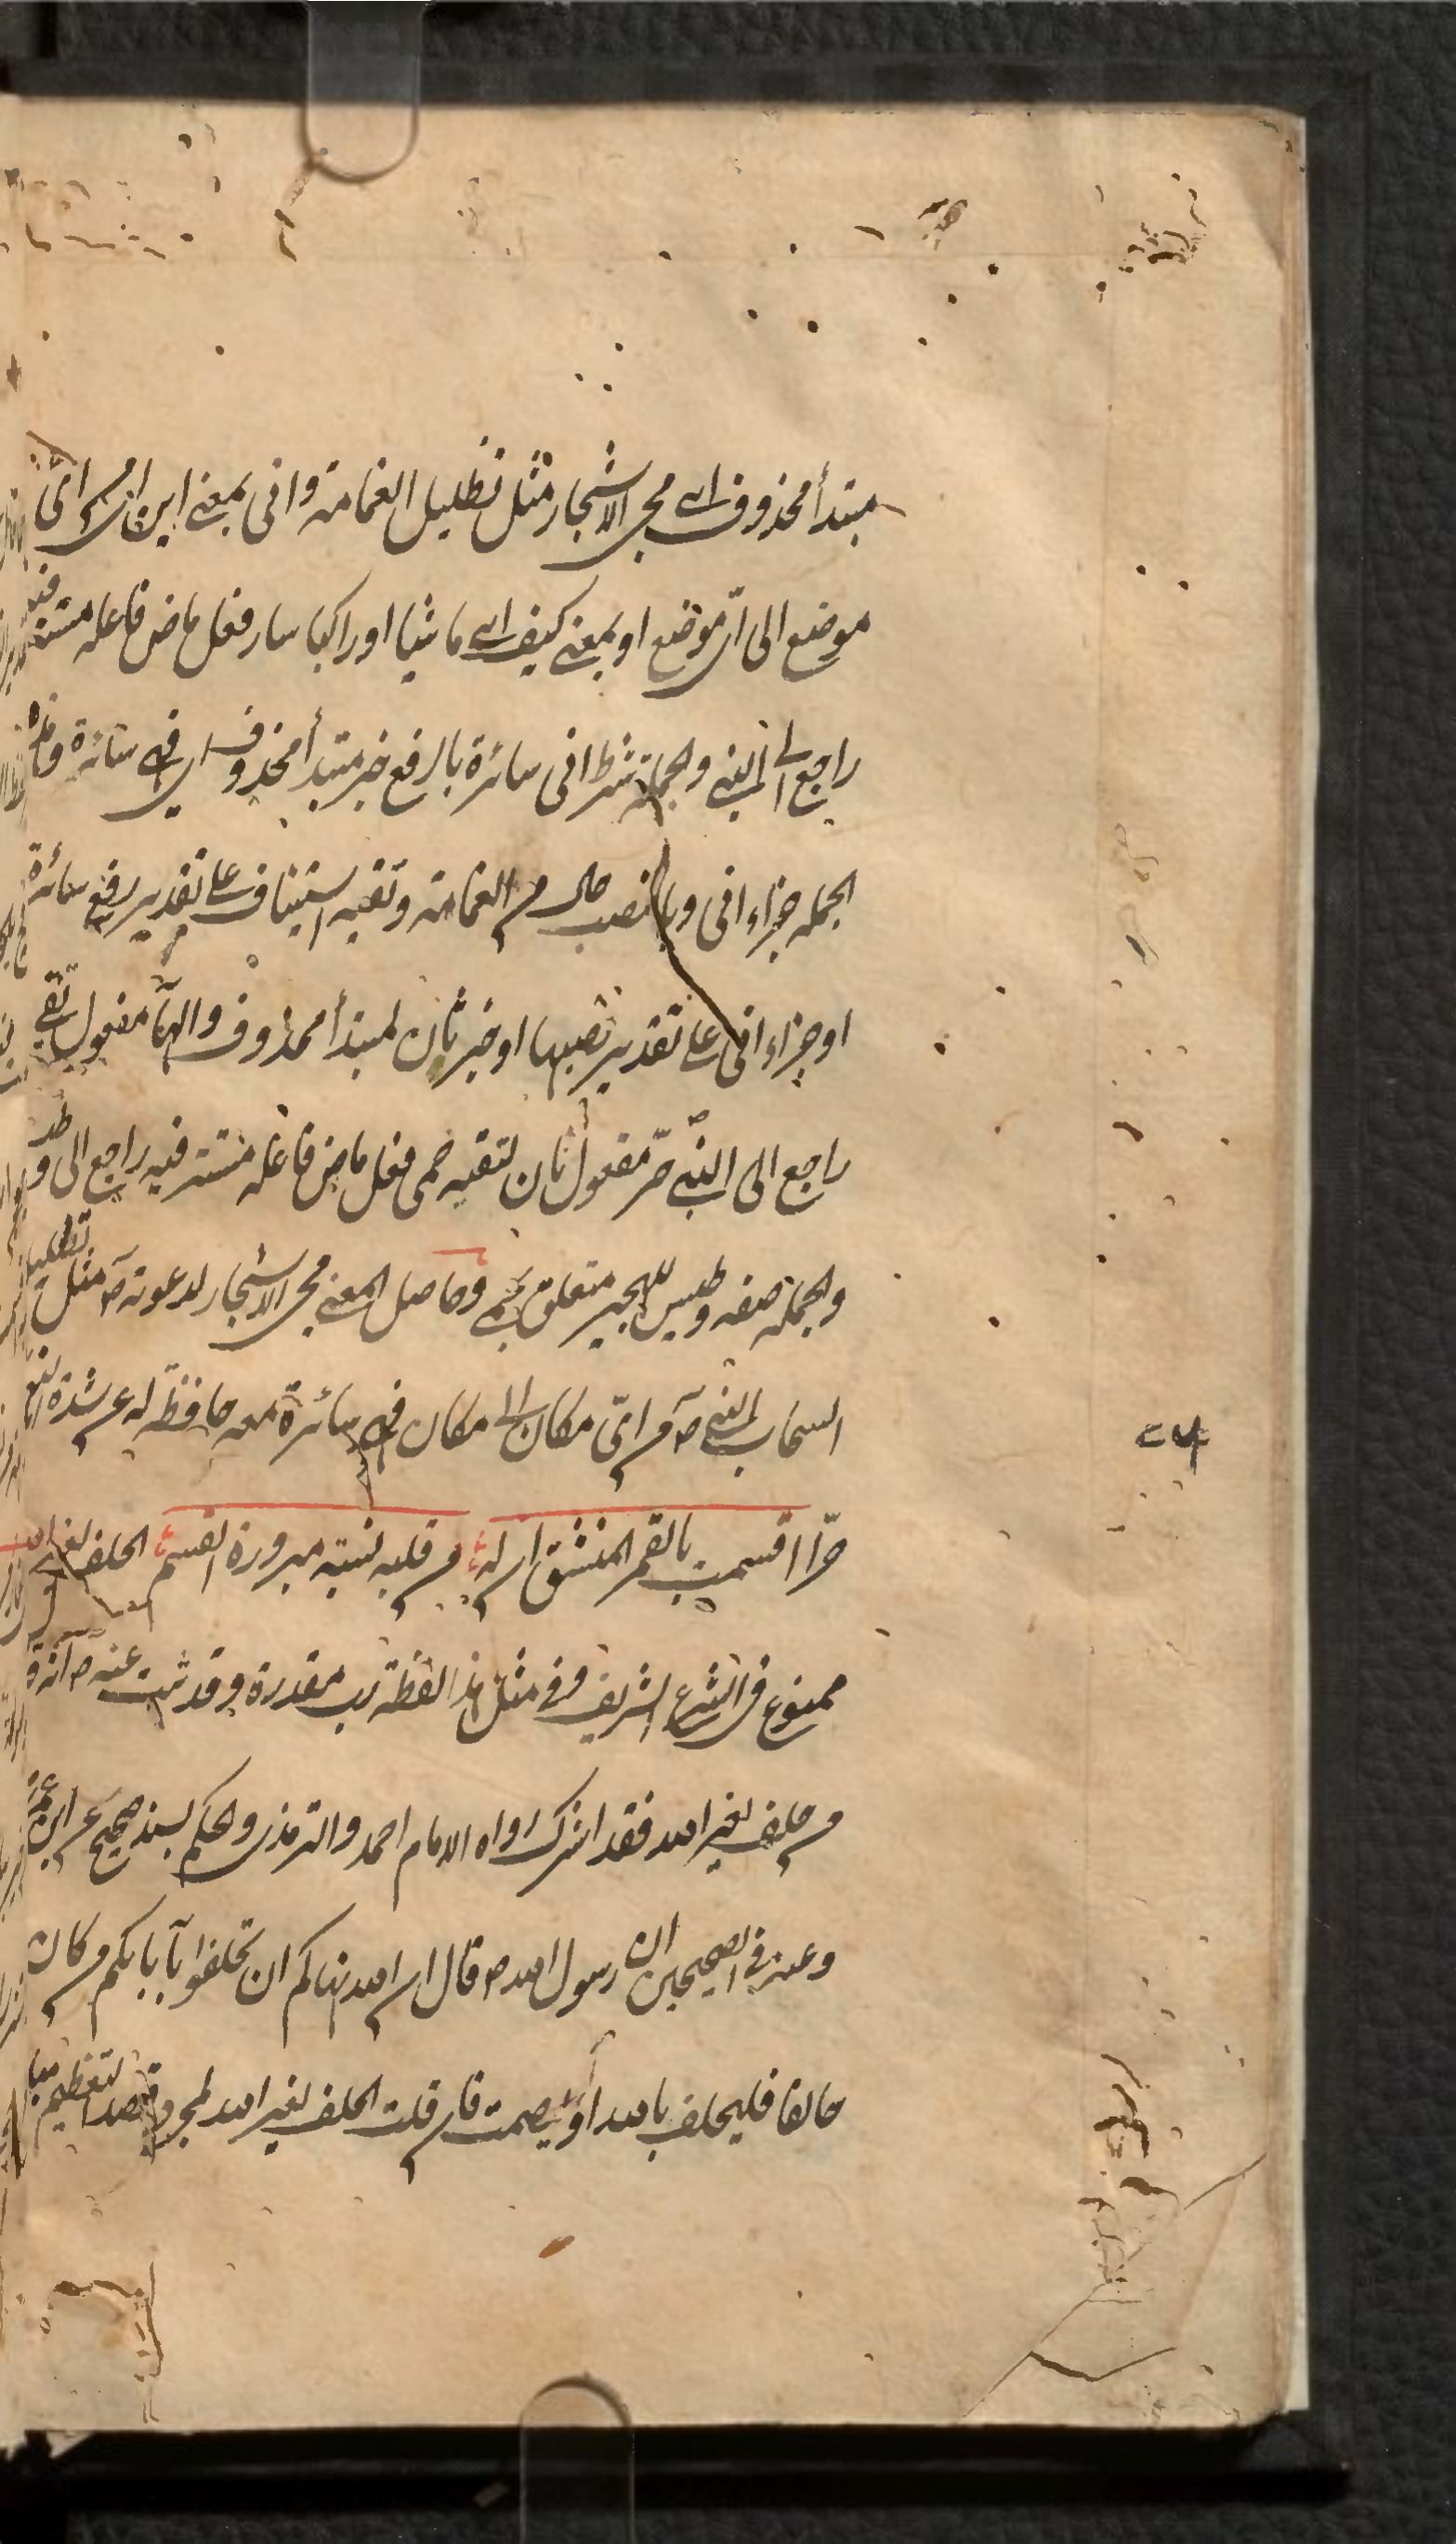 مبتدأ محذوف اے مجئ الاشجار مثل تظليل الغمامة وانى بمعنى اين اى من اىّ
موضع الى اىّ موضع او بمعنى كيف اے ماشيا او راكبا سار فعل ماض فاعله مستتر فيه
راجع الى النبى والجملة شرط انى سائرة بالرفع خبر مبتدأ محذوف اى فهى سائرة وهذه
الجملة جزاء انى وبالنصب حال من الغمامة وتقيه استيناف على تقدير رفع سائرة
او جزاء انى على تقدير نصبها او خبر ثان لمبتدأ محذوف والهآء مفعول تقى
راجع الى النبى حرّ مفعول ثان لتقيه حمى فعل ماض فاعله مستتر فيه راجع الى وطيس
والجملة صفة وطيس للهجير متعلق بحمى وحاصل المعنى مجئ الاشجار لدعوته صۤ مثل تظليل
السحاب للنبى صۤ من اىّ مكان الى مكان فهى سائرة معه حافظة له عن شدة
حرّا اقسمت بالقمر المنشق ان له من قلبه نسبة مبرورة القسم الحلف لغير الله
ممنوع فى الشرع الشريف وفى مثل هذا لفظة رب مقدرة وقد ثبت عنه صۤ انه ق
من حلف لغير الله فقد اشرك رواه الامام احمد والترمذى والحكم بسند صحيح عن ابن عمر
وعنه فى الصحيحين ان رسول الله ص قال ان الله نهاكم ان تحلفوا بآبائكم من كان
حالفا فليحلف بالله او ليصمت فان قلت الحلف لغير الله لمجرد قصد التعظيم